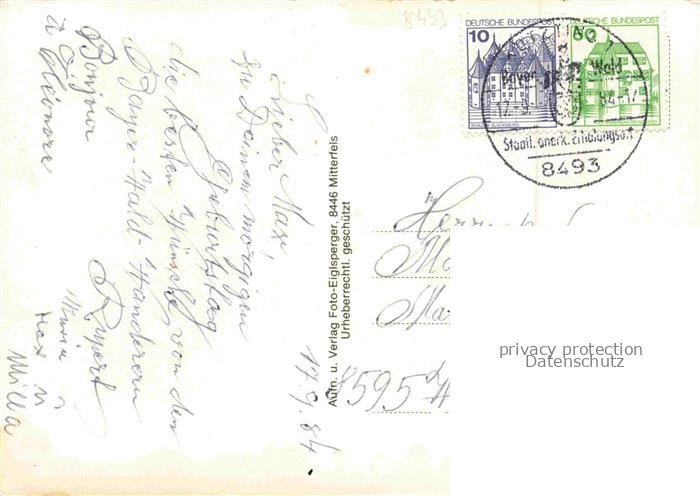 8493
DEUTSCHE BUNDESPOST
10
DEUTSCHE BUNDESPOST
60
Bayer. Wald
17.-9. 84-17
Staatl. anerk. Erholungsort
8493
Lieber Max!
Zu Deinem morgigen
Geburtstag
die besten Wünsche von den
Bayer-Wald-Wanderern
Rupert
Bonjour
à
Eleonore
Maria
Max
Milla
17.9.84
Aufn. u. Verlag Foto-Eiglsperger, 8446 Mitterfels
Urheberrechtl. geschützt
Herrn
8595
privacy protection
Datenschutz